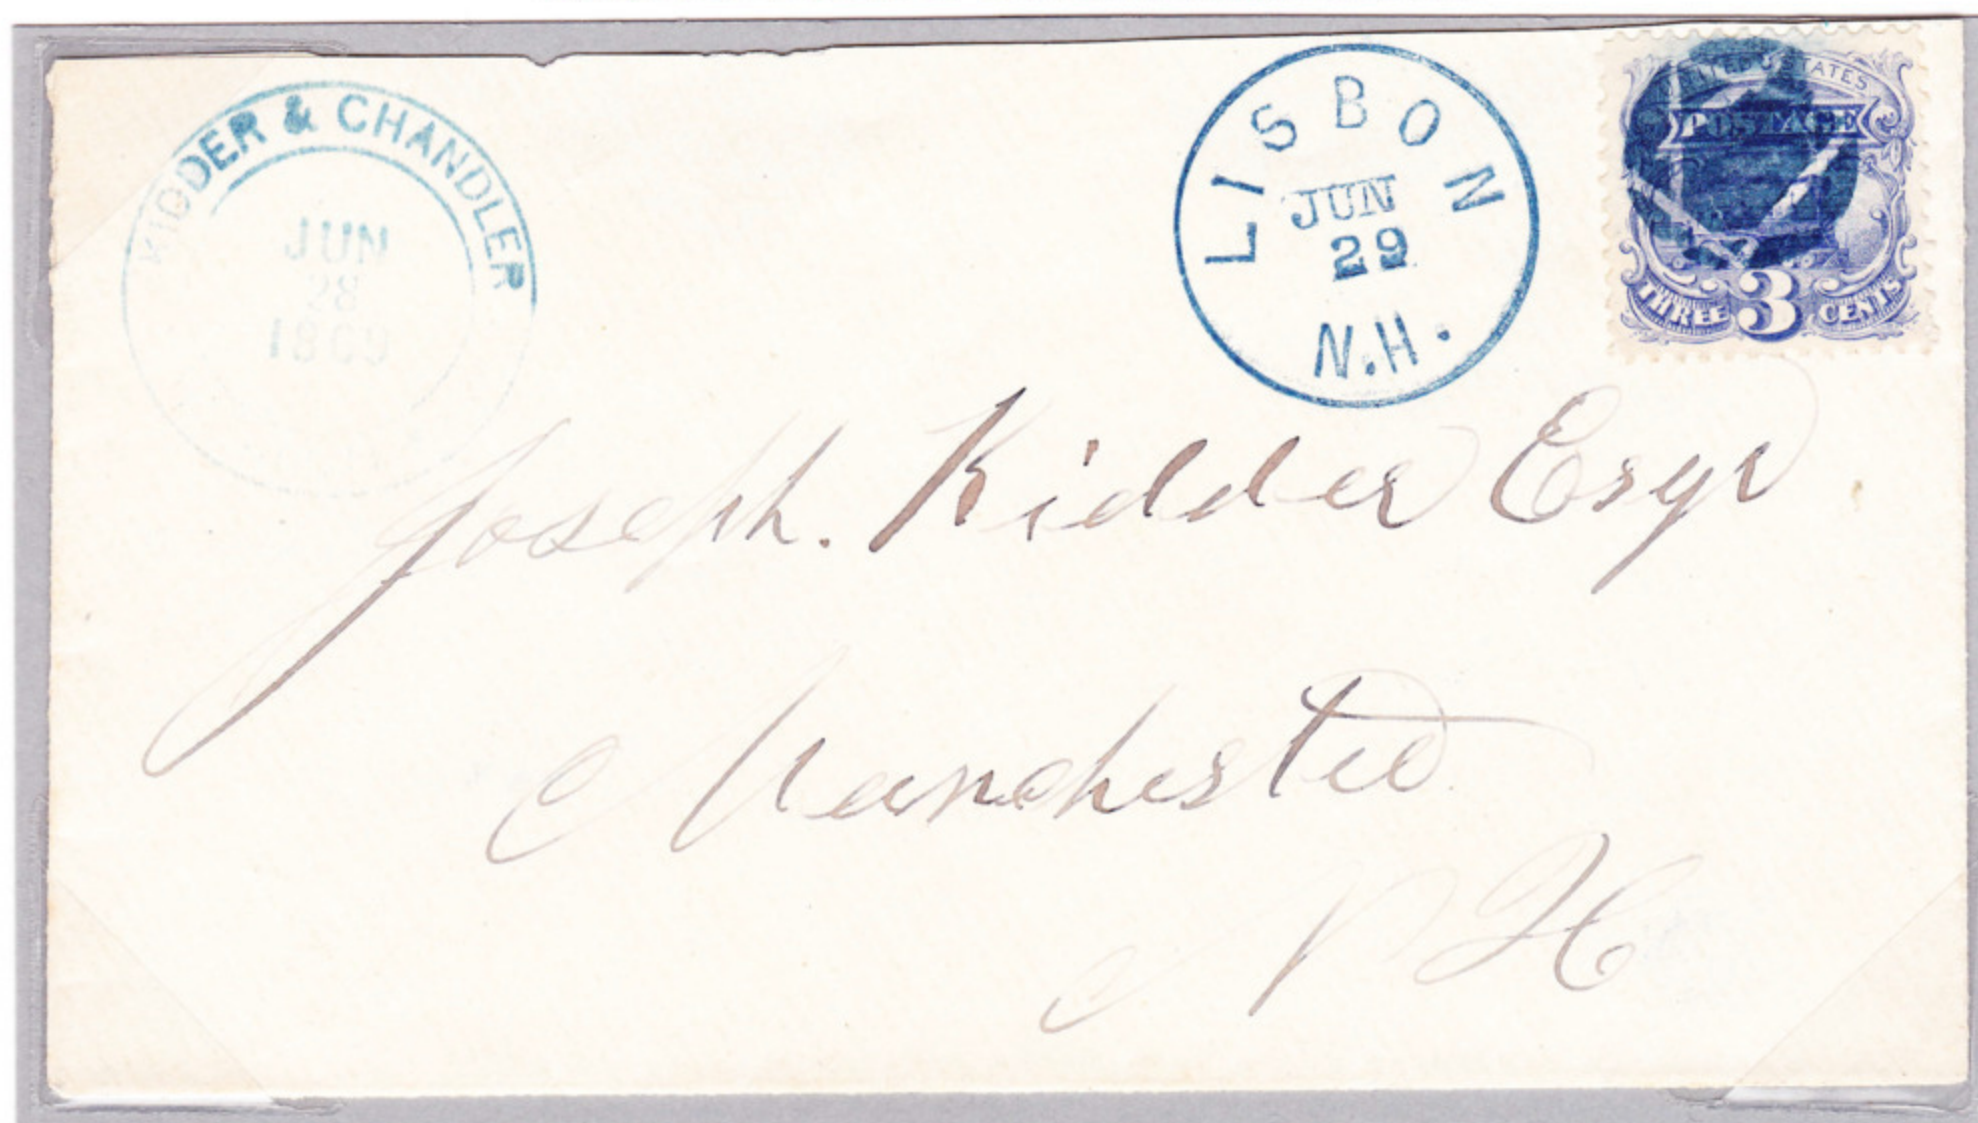 KIDDER & CHANDLER
JUN
28
1869
LISBON
JUN
29
N.H.
UNITED STATES
POSTAGE
THREE 3 CENTS
Joseph. Kidder Esqr
Manchester
N H